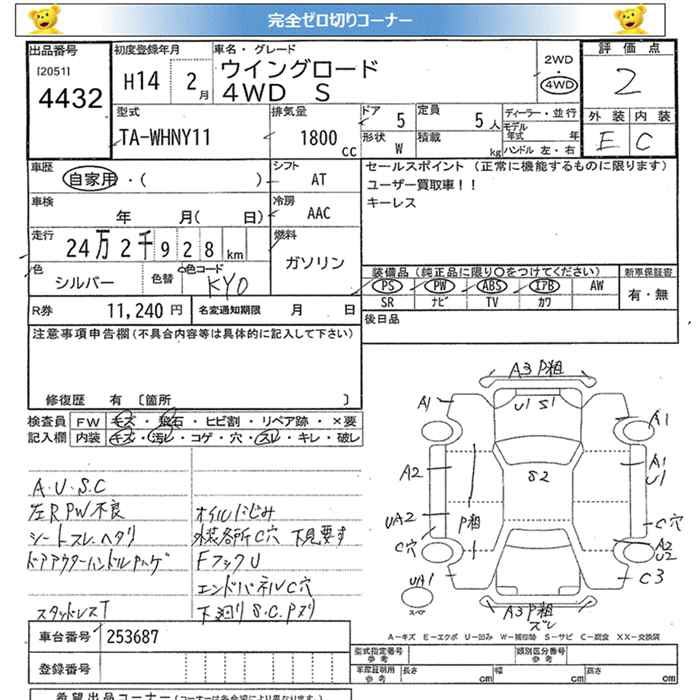 完全ゼロ切りコーナー
出品番号
[2051]
4432
初度登録年月
H14 2月
車名・グレード
ウイングロード
4WD S
2WD
・
4WD
評価点
2
外装 内装
E C
型式
TA-WHNY11
排気量
1800 cc
ドア 5
定員 5人
形状 W
積載 kg
ディーラー・並行
モデル年式 年
ハンドル 左・右
車歴
自家用・( )
シフト
AT
車検
年 月( 日)
冷房
AAC
走行
24万2千928km
燃料
ガソリン
色
シルバー
色替
色コード
KY0
セールスポイント (正常に機能するものに限ります)
ユーザー買取車!!
キーレス
装備品(純正品に限り○をつけてください)
PS PW ABS エアB AW
SR ナビ TV カワ
新車保証書
有・無
R券 11,240円
名変通知期限 月 日
後日品
注意事項申告欄(不具合内容等は具体的に記入して下さい)
修復歴 有 〔箇所 〕
検査員
記入欄
FW キズ・飛石・ヒビ割・リペア跡・×要
内装 キズ・汚レ・コゲ・穴・スレ・キレ・破レ
A.U.S.C
左RPW不良
シートスレ.ヘタリ
ドアアウターハンドルハゲ
スタッドレスT
オイルにじみ
外装各所C穴 下見要す
FフックU
エンドパネルC穴
下廻りS.C.Pズリ
A3 P粗
A1
U1 S1
A1
A2
S2
A1
U1
UA2
P粗
C穴
C穴
A2
U2
UA1
C3
スペア
A3P粗
ズレ
A-キズ E-エクボ U-凹み W-補修跡 S-サビ C-腐食 XX-交換済
車台番号 253687
登録番号
型式指定番号
参考
類別区分番号
参考
車庫証明用
参考
長さ cm
幅 cm
高さ cm
希望出品コーナー